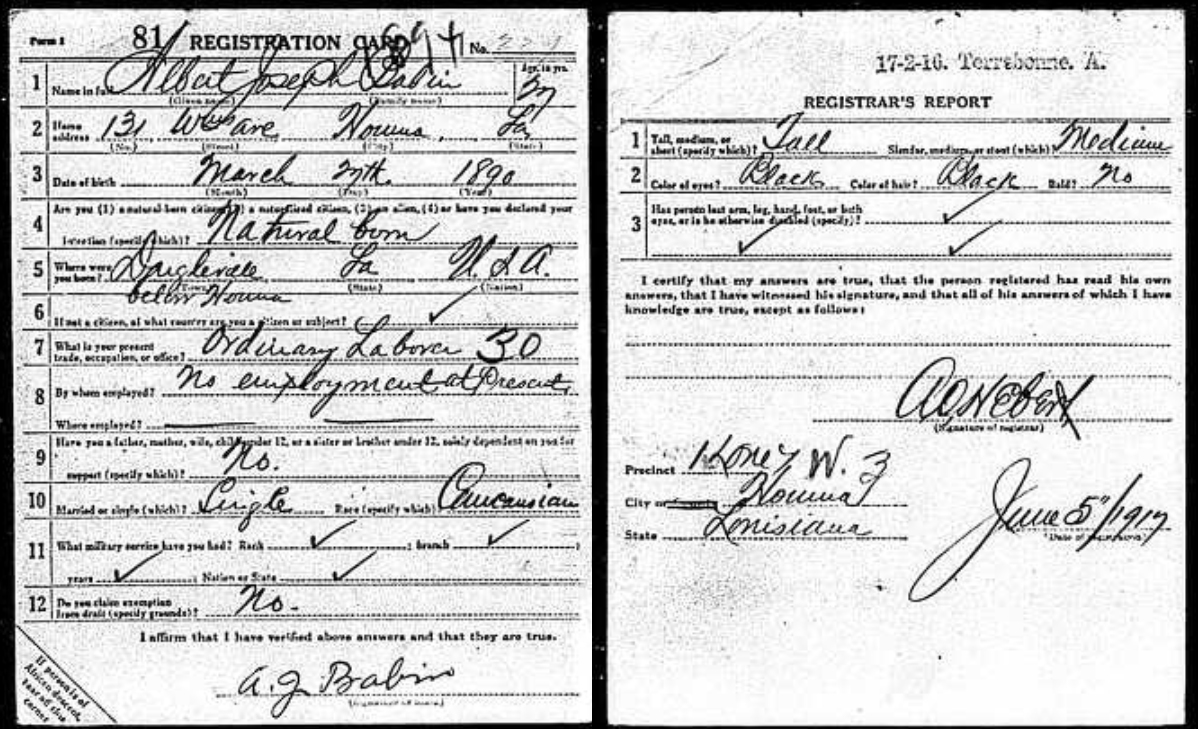 Form 1 81 REGISTRATION CARD No.
1 Name in full Albert Joseph Babin Age, in yrs. 27
(Given name) (Family name)
2 Home address 131 Ave Houma, La
(No.) (Street) (City) (State)
3 Date of birth March 27th 1890
(Month) (Day) (Year)
4 Are you (1) a natural-born citizen, (2) a naturalized citizen, (3) an alien, (4) or have you declared your
intention (specify which)? Natural born
5 Where were you born? Daigleville La U. S. A.
(Town) (State) (Nation)
below Houma
6 If not a citizen, of what country are you a citizen or subject?
7 What is your present trade, occupation, or office? Ordinary Laborer 30
8 By whom employed? No employment at Present
Where employed?
9 Have you a father, mother, wife, child under 12, or a sister or brother under 12, solely dependent on you for
support (specify which)? No.
10 Married or single (which)? Single Race (specify which)? Caucasian
11 What military service have you had? Rank ; branch ;
years ; Nation or State
12 Do you claim exemption from draft (specify grounds)? No.
I affirm that I have verified above answers and that they are true.
A. J. Babin
(Signature or mark)
If person is of
African descent,
tear off this
corner
17-2-16. Terrebonne. A.
REGISTRAR'S REPORT
1 Tall, medium, or short (specify which)? Tall Slender, medium, or stout (which)? Medium
2 Color of eyes? Black Color of hair? Black Bald? No
3 Has person lost arm, leg, hand, foot, or both
eyes, or is he otherwise disabled (specify)?
I certify that my answers are true, that the person registered has read his own
answers, that I have witnessed his signature, and that all of his answers of which I have
knowledge are true, except as follows:
(Signature of registrar)
Precinct W. 3
City or Houma
State Louisiana
June 5/1917
(Date of registration)